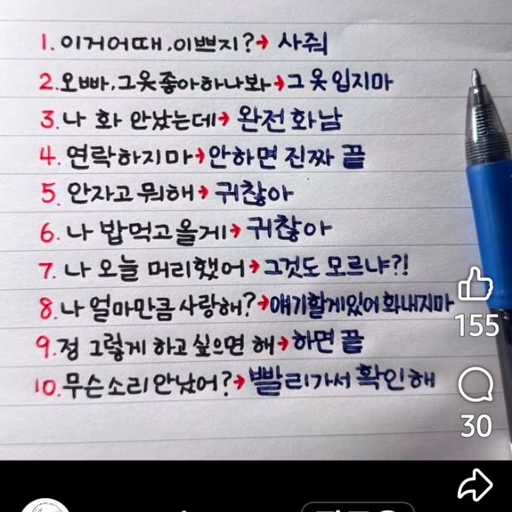 1. 이거어때,이쁘지?→ 사줘
2.오빠,그옷좋아하나봐→그 옷 입지마
3.나 화 안났는데→ 완전화남
4. 연락하지마→안하면 진짜 끝
5. 안자고 뭐해→ 귀찮아
6. 나 밥먹고올게→ 귀찮아
7. 나 오늘 머리했어→그것도 모르냐?!
8.나 얼마만큼 사랑해?→얘기할게있어 화내지마
155
9.정 그렇게 하고 싶으면 해→하면 끝
10.무슨소리안났어?→빨리가서 확인해
30